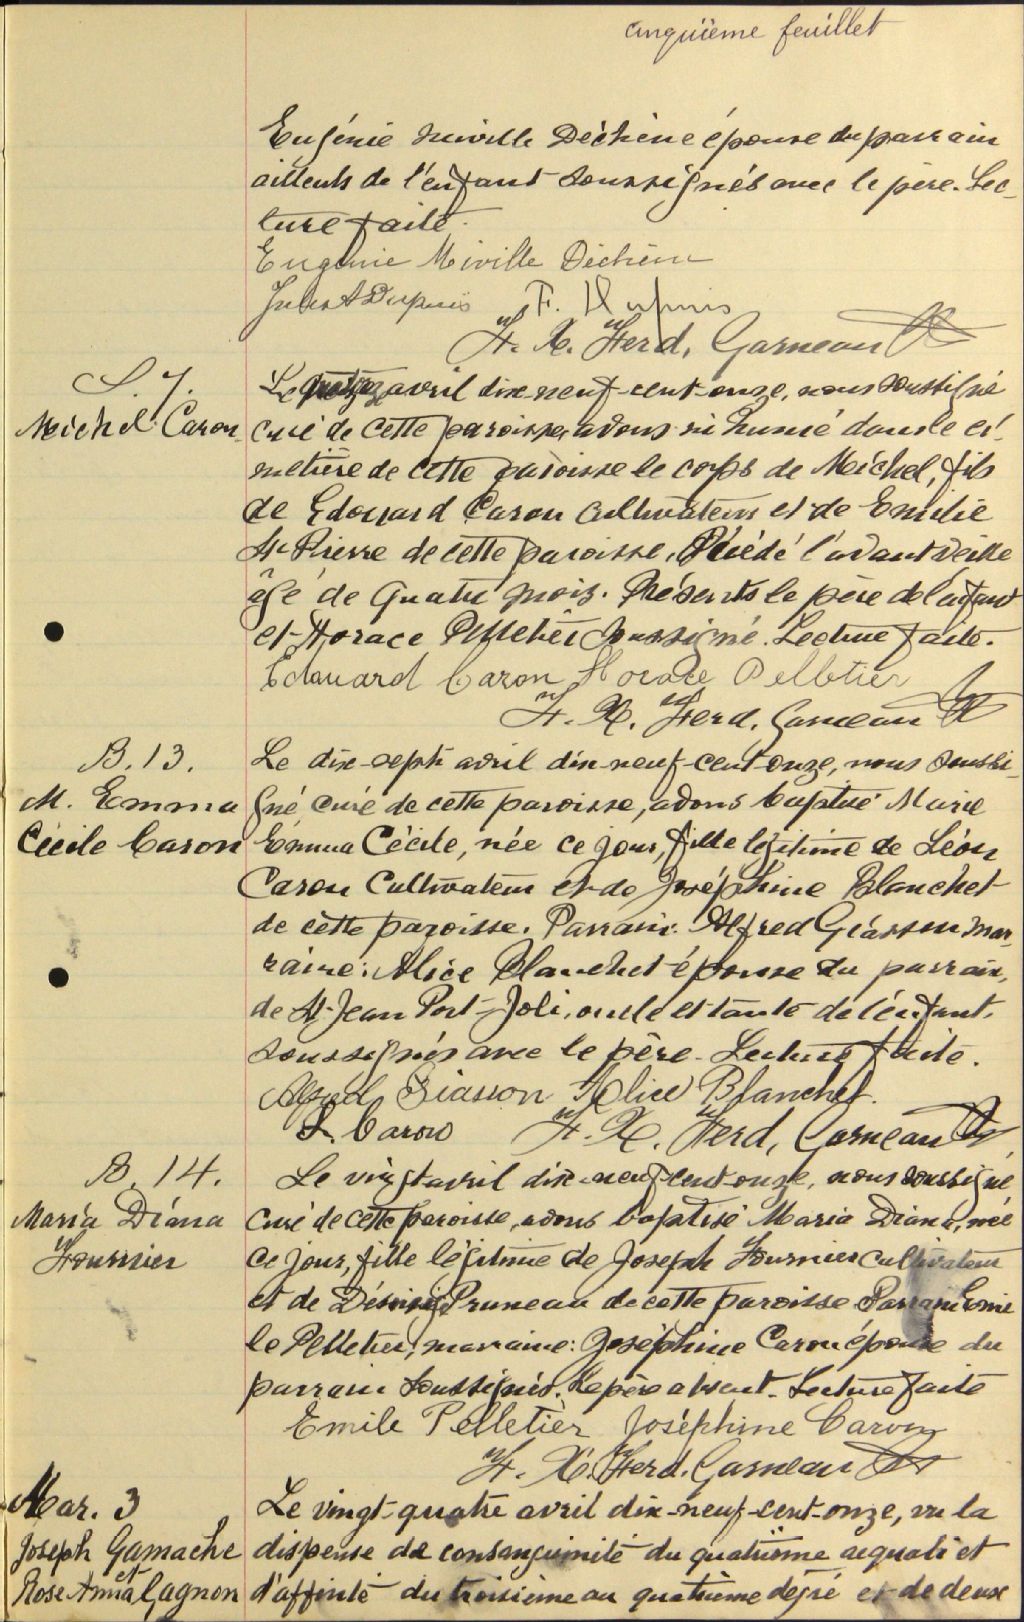 cinquième feuillet
Eugénie Miville Déchène épouse du parrain
aïeuls de l'enfant soussignés avec le père. Lec-
ture faite.
Eugénie Miville Déchène
Jules A Dupuis F. Dupuis
F. X. Ferd. Garneau Ptr
S. 7.
Michel Caron
Le avril dix-neuf-cent-onze, nous soussigné
curé de cette paroisse, avons inhumé dans le ci-
metière de cette paroisse le corps de Michel, fils
de Edouard Caron cultivateur et de Emilie
St-Pierre de cette paroisse. Décédé l'avant veille
âgé de quatre mois. Présents le père de l'enfant
et Horace Pelletier soussigné. Lecture faite.
Edouard Caron Horace Pelletier
F. X. Ferd. Garneau Ptr
B. 13.
M. Emma
Cécile Caron
Le dix-sept avril dix-neuf-cent onze, nous soussi-
gné curé de cette paroisse, avons baptisé Marie
Emma Cécile, née ce jour, fille légitime de Léon
Caron cultivateur et de Joséphine Blanchet
de cette paroisse. Parrain: Alfred Giasson mar-
raine: Alice Blanchet épouse du parrain,
de St-Jean Port-Joli, oncle et tante de l'enfant,
soussignés avec le père. Lecture faite.
Alfred Giasson Alice Blanchet.
L. Caron F. X. Ferd. Garneau Ptr
B. 14.
Maria Diana
Fournier
Le vingt avril dix-neuf-cent-onze, nous soussigné
curé de cette paroisse, avons baptisé Maria Diana, née
ce jour, fille légitime de Joseph Fournier cultivateur
et de Pruneau de cette paroisse Parrain Emi-
le Pelletier, marraine: Joséphine Caron épouse du
parrain soussignés. Le père absent. Lecture faite
Emile Pelletier Joséphine Caron
F. X. Ferd. Garneau Ptr
Mar. 3
Joseph Gamache
et
Rose Anna Gagnon
Le vingt-quatre avril dix-neuf-cent-onze, vu la
dispense de consanguinité du quatrième aequali et
d'affinité du troisième au quatrième degré et de deux